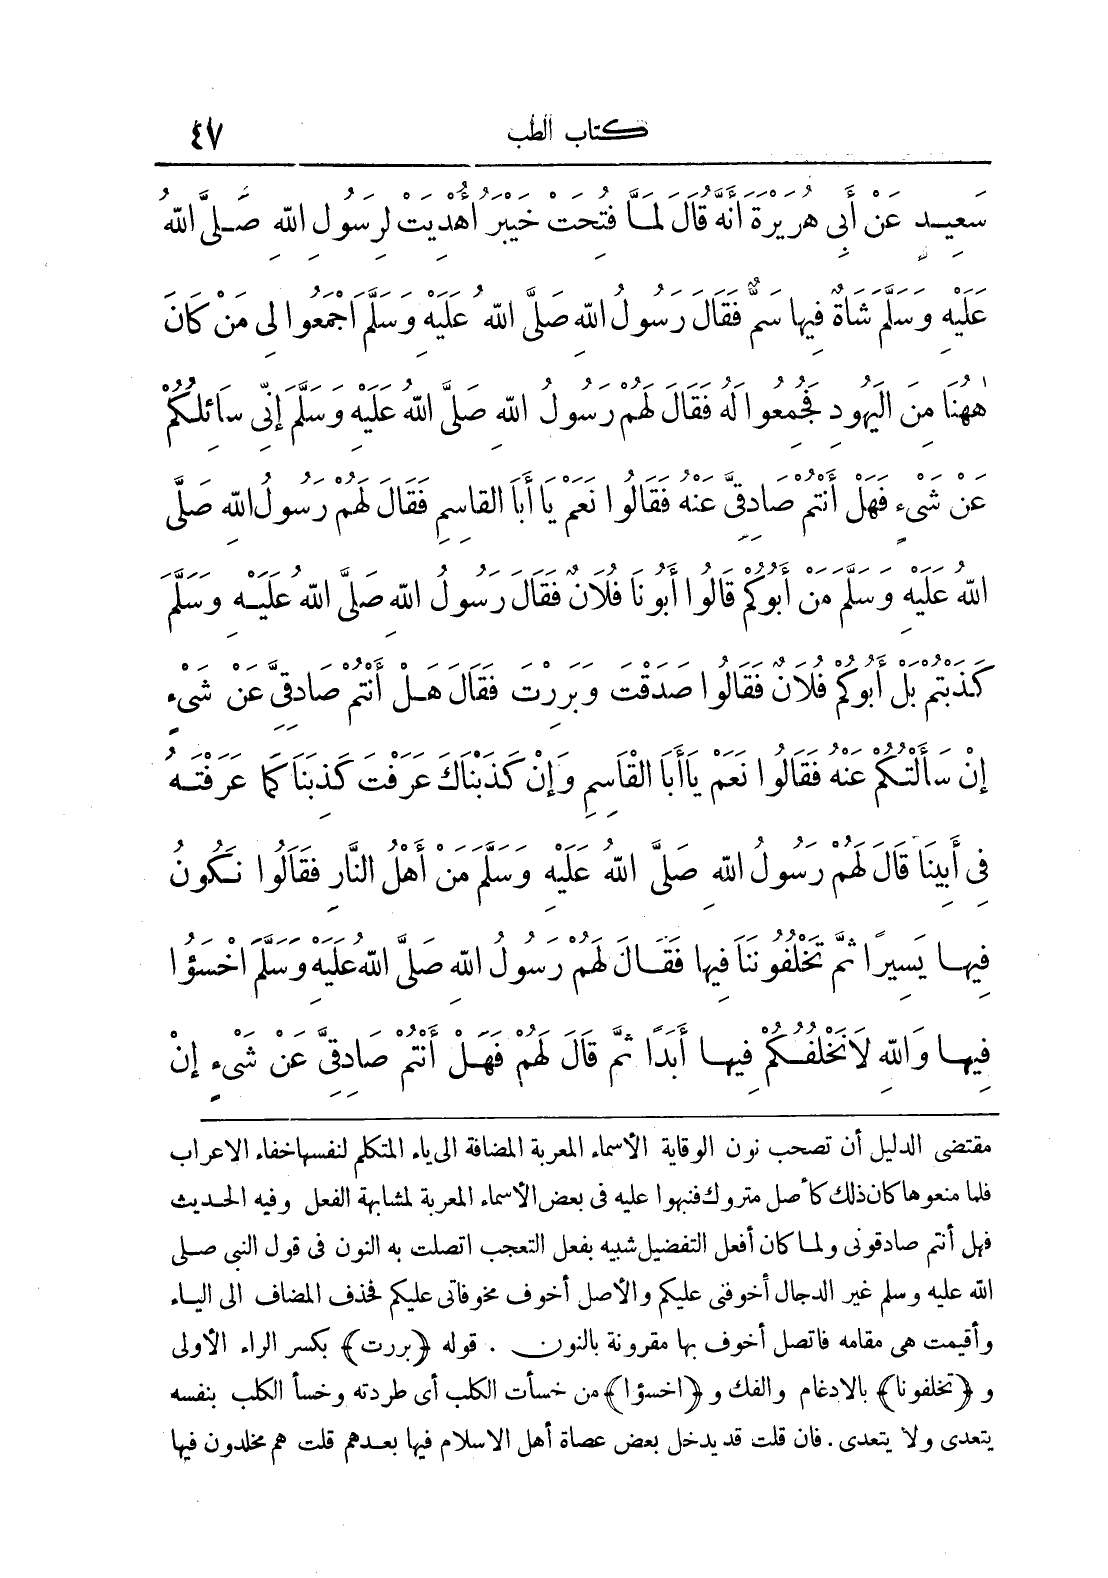 كتاب الطب ٤٧
سَعِيدٍ عَنْ أَبِي هُرَيْرَةَ أَنَّهُ قَالَ لَمَّا فُتِحَتْ خَيْبَرُ أُهْدِيَتْ لِرَسُولِ اللهِ صَلَّى اللهُ
عَلَيْهِ وَسَلَّمَ شَاةٌ فِيهَا سَمٌّ فَقَالَ رَسُولُ اللهِ صَلَّى اللهُ عَلَيْهِ وَسَلَّمَ اجْمَعُوا لِي مَنْ كَانَ
هٰهُنَا مِنَ الْيَهُودِ فَجُمِعُوا لَهُ فَقَالَ لَهُمْ رَسُولُ اللهِ صَلَّى اللهُ عَلَيْهِ وَسَلَّمَ إِنِّي سَائِلُكُمْ
عَنْ شَيْءٍ فَهَلْ أَنْتُمْ صَادِقِيَّ عَنْهُ فَقَالُوا نَعَمْ يَا أَبَا القَاسِمِ فَقَالَ لَهُمْ رَسُولُ اللهِ صَلَّى
اللهُ عَلَيْهِ وَسَلَّمَ مَنْ أَبُوكُمْ قَالُوا أَبُونَا فُلَانٌ فَقَالَ رَسُولُ اللهِ صَلَّى اللهُ عَلَيْهِ وَسَلَّمَ
كَذَبْتُمْ بَلْ أَبُوكُمْ فُلَانٌ فَقَالُوا صَدَقْتَ وَبَرِرْتَ فَقَالَ هَلْ أَنْتُمْ صَادِقِيَّ عَنْ شَيْءٍ
إِنْ سَأَلْتُكُمْ عَنْهُ فَقَالُوا نَعَمْ يَا أَبَا الْقَاسِمِ وَإِنْ كَذَبْنَاكَ عَرَفْتَ كَذِبَنَا كَمَا عَرَفْتَهُ
فِي أَبِينَا قَالَ لَهُمْ رَسُولُ اللهِ صَلَّى اللهُ عَلَيْهِ وَسَلَّمَ مَنْ أَهْلُ النَّارِ فَقَالُوا نَكُونُ
فِيهَا يَسِيرًا ثُمَّ تَخْلُفُونَنَا فِيهَا فَقَالَ لَهُمْ رَسُولُ اللهِ صَلَّى اللهُ عَلَيْهِ وَسَلَّمَ اخْسَؤُا
فِيهَا وَاللهِ لَا نَخْلُفُكُمْ فِيهَا أَبَدًا ثُمَّ قَالَ لَهُمْ فَهَلْ أَنْتُمْ صَادِقِيَّ عَنْ شَيْءٍ إِنْ
مقتضى الدليل أن تصحب نون الوقاية الأسماء المعربة المضافة الى ياء المتكلم لنفسها خفاء الاعراب
فلما منعوها كان ذلك كأصل متروك فنبهوا عليه فى بعض الأسماء المعربة لمشابهة الفعل وفيه الحديث
فهل أنتم صادقونى ولما كان أفعل التفضيل شبيه بفعل التعجب اتصلت به النون فى قول النبى صلى
الله عليه وسلم غير الدجال أخوفنى عليكم والأصل أخوف مخوفاتى عليكم فحذف المضاف الى الياء
وأقيمت هى مقامه فاتصل أخوف بها مقرونة بالنون . قوله ﴿بررت﴾ بكسر الراء الأولى
و ﴿تخلفونا﴾ بالادغام والفك و ﴿اخسؤا﴾ من خسأت الكلب أى طردته وخسأ الكلب بنفسه
يتعدى ولا يتعدى . فان قلت قد يدخل بعض عصاة أهل الاسلام فيها بعدهم قلت هم مخلدون فيها